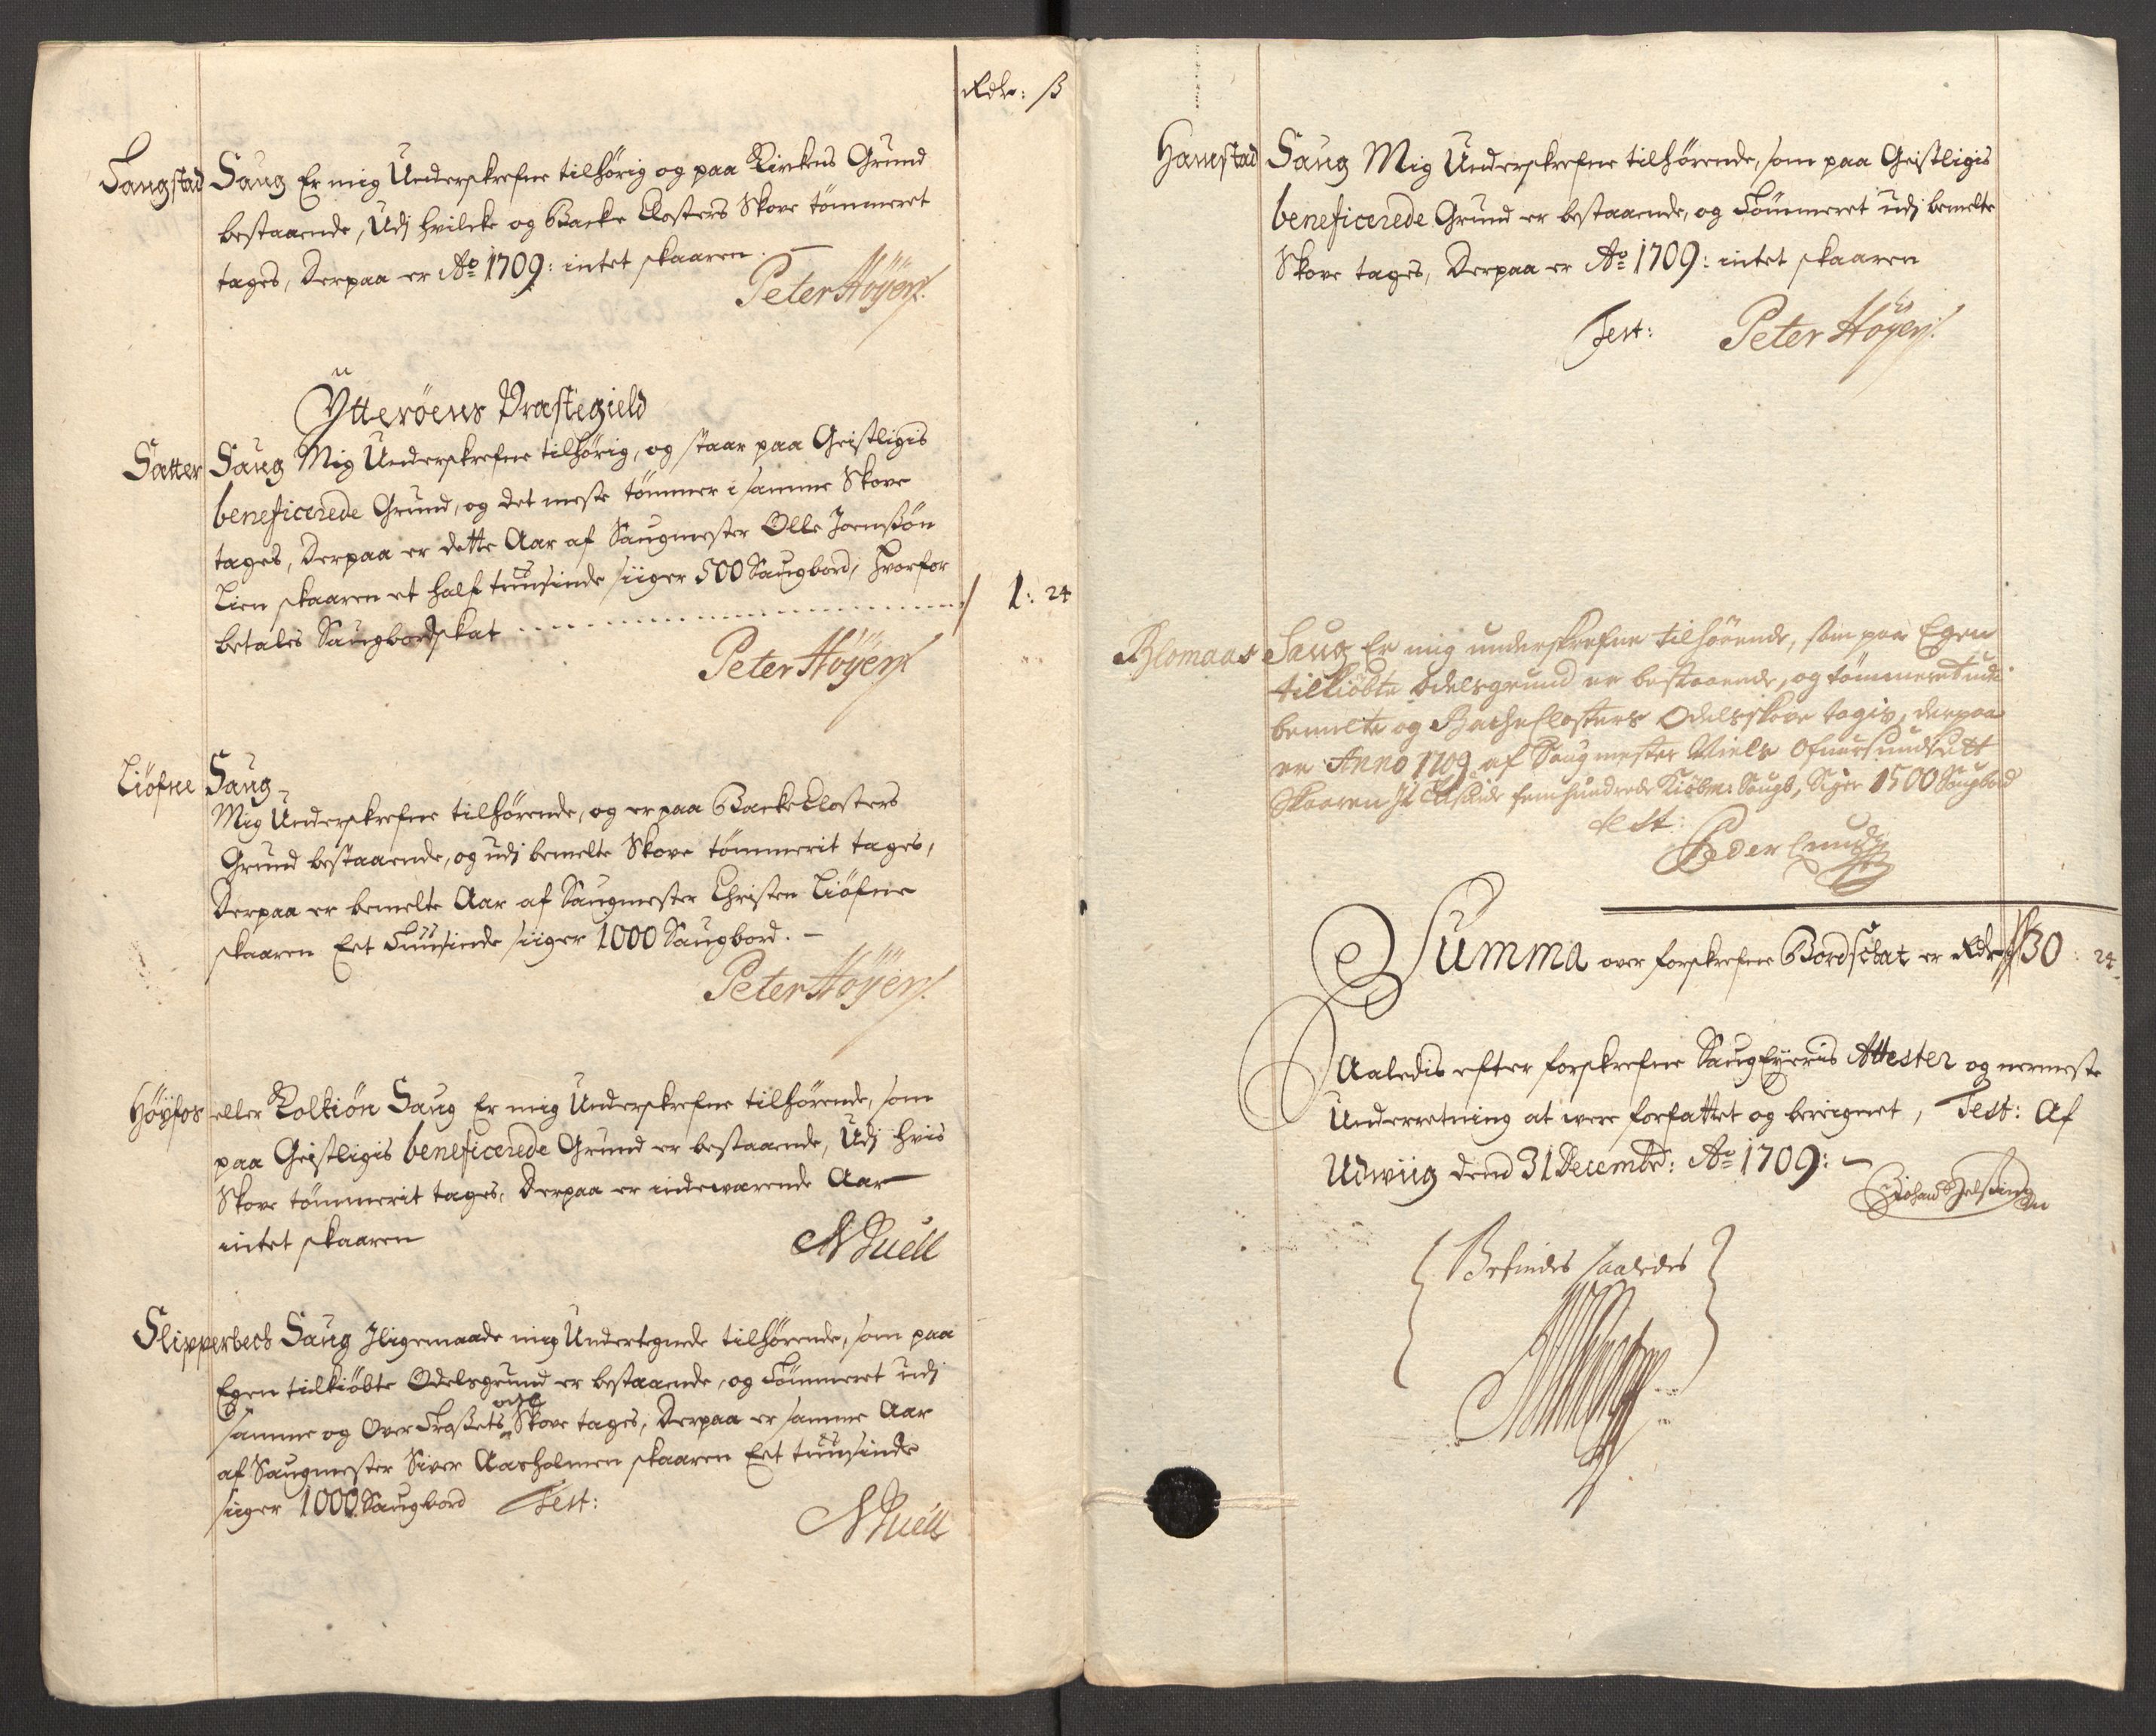 Rdr: ß
Langstad Saug Er mig Underskrefne tilhörig og paa Kirkens Grund
bestaaende, Udj hvilcke og Backe Closters Skove tömmeret
tages, Derpaa er Ao 1709: intet skaaren.
Peter Höyer
Ÿtteröens Præstegield
Sætter Saug Mig Underskrefne tilhörig, og staar paa Geistligis
beneficerede Grund, og det meste tömmer i samme Skove
tages, Derpaa er dette Aar af Saugmester Olle Joensßön
Lien skaaren et half tuusinde siiger 500 Saugbord, hvorfor
betales Saugbordskat 1: 24
Peter Höyer
Liöfne Saug
Mig Underskrefne tilhörende, og er paa Backe Closters
Grund bestaaende, og udj bemelte Skove tömmerit tages,
Derpaa er bemelte Aar af Saugmester Christen Liöfne
skaaren Eet Tuusinde siiger 1000 Saugbord.
Peter Höyer
Höÿfos eller Kolkiön Saug Er mig Underskrefne tilhörende, som
paa Geistligis beneficerede Grund er bestaaende, Udj hvis
Skove tömmerit tages, Derpaa er indeværende Aar
intet skaaren
Slipperbech Saug Jligemaade mig Undertegnede tilhörende, som paa
Egen tilkiöbte Odelsgrund er bestaaende, og Tömmeret udj
samme og Over Skove tages, Derpaa er samme Aar
af Saugmester Siver Aasholmen skaaren Eet tuusinde
siiger 1000 Saugbord Test:
Hamstad Saug Mig Underskrefne tilhörende, som paa Geistligis
beneficerede Grund er bestaaende, og Tömmeret udj bemelte
Skove tages, Derpaa er Ao 1709: intet skaaren
Test: Peter Höyer
Blomaas Saug Er mig underskrefne tilhörende, som paa Egen
tilkiöbte Odelsgrund er bestaaende, og tömmeret udi
bemelte og Backe Closters Odelsskove tagis, derpaa
er Anno 1709 af Saugmester Niels
Skaaren Et Tusinde femhundrede Saugb, Siger 1500 Saugbord
test:
Summa over forskrefne Bordschat er Rdr 30: 24
Saaledis efter forskrefne Saug Eyeris Attester og nermeste
Underretning at were forfattet og beregnet, Test: Af
Udwiig dend 31 Decembr: Ao 1709:
Befindes saaledes